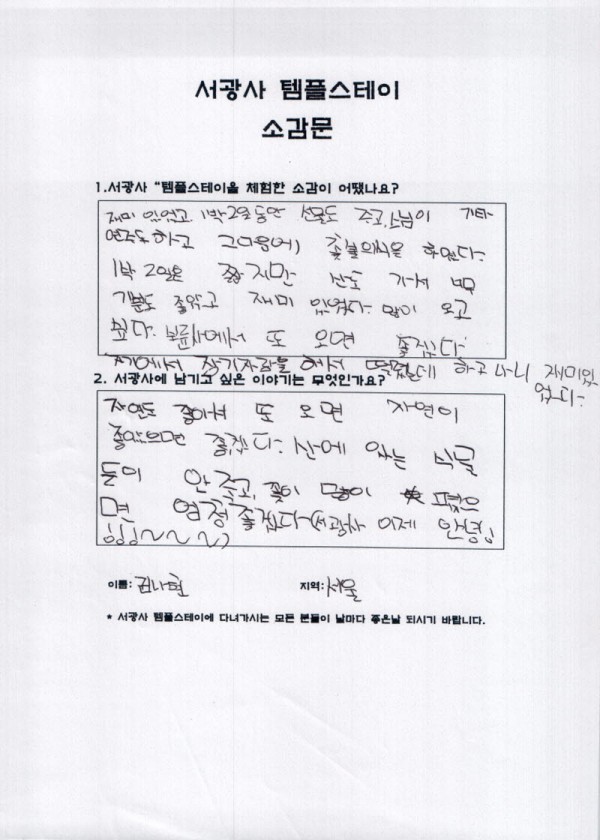 서광사 템플스테이
소감문
1.서광사 "템플스테이을 체험한 소감이 어땠나요?
재미 있었고 1박2일동안 선물도 주고,스님이 기타
연주도하고 그다음에 촛불의식을 하였다.
1박 2일은 짧지만 산도 가서
기분도 좋았고 재미 있었다. 많이 오고
싶다. 에서 또 오면 좋겠다
장기자랑을 해서 떨렸는데 하고나니 재미있
었다.
2. 서광사에 남기고 싶은 이야기는 무엇인가요?
자연도 좋아서 또 오면 자연이
좋았으면 좋겠다. 산에 있는 식물
들이 안 죽고, 꽃이 많이 폈으
면 엄청좋겠다 서광사 이제 안녕
~~~
이름: 김나현 지역: 서울
* 서광사 템플스테이에 다녀가시는 모든 분들이 날마다 좋은날 되시기 바랍니다.